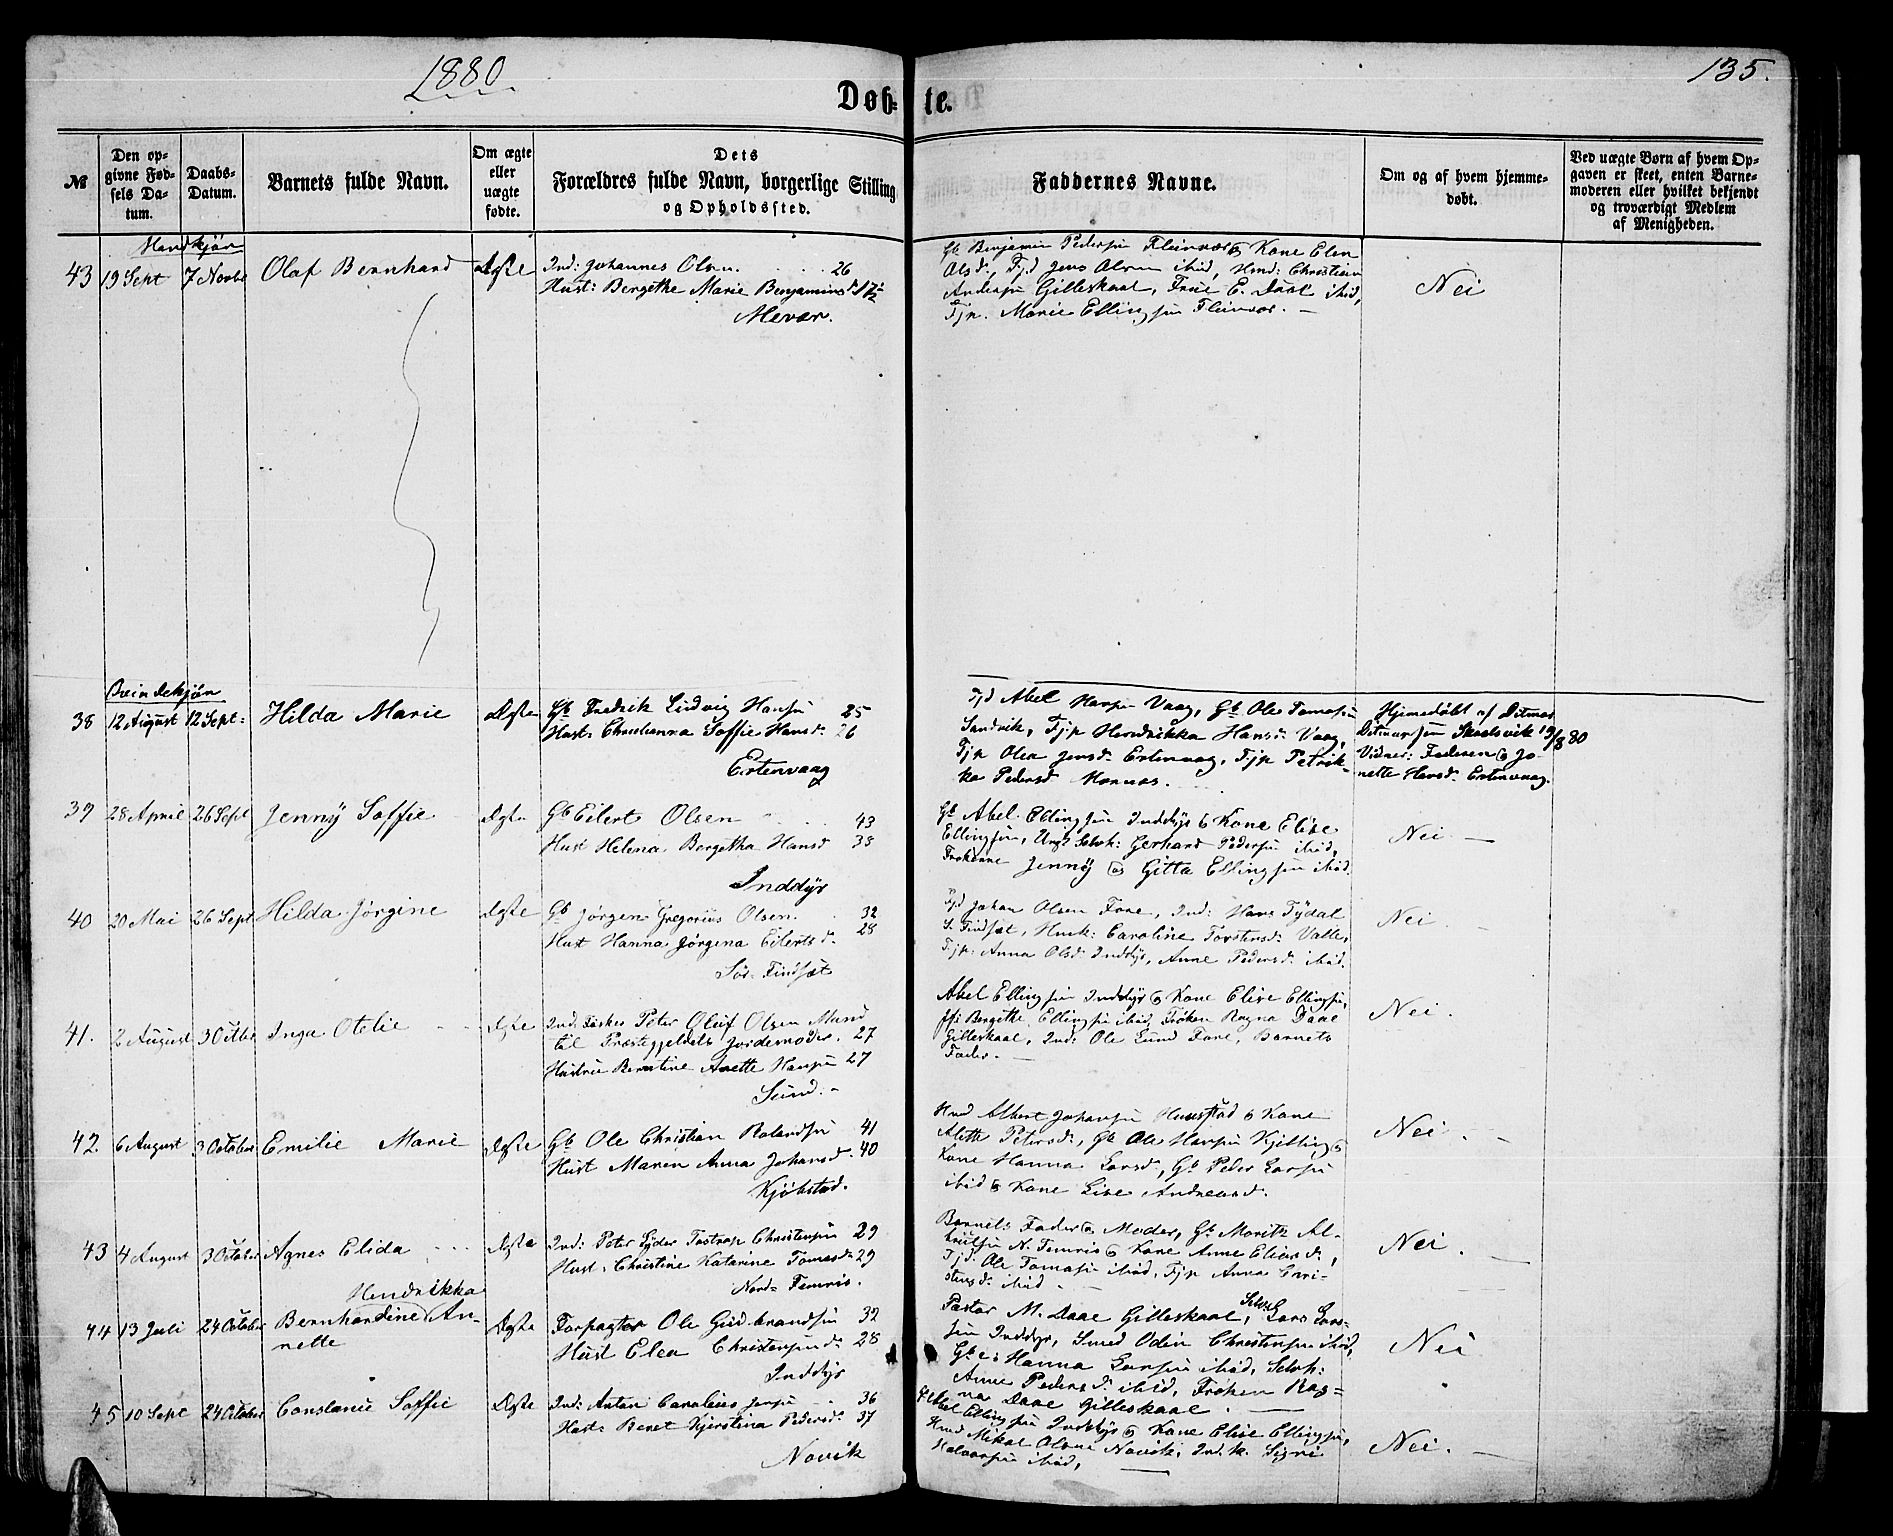 1880
135.
Døb- te.
№
Den op-
givne Fød-
sels Da-
tum.
Daabs-
Datum.
Barnets fulde Navn.
Om ægte
eller
uægte
fødte.
Dets
Forældres fulde Navn, borgerlige Stilling
og Opholdssted.
Faddernes Navne.
Om og af hvem hjemme-
døbt.
Ved uægte Børn af hvem Op-
gaven er skeet, enten Barne-
moderen eller hvilket bekjendt
og troværdigt Medlem
af Menigheden.
Mandkjøn
43 19 Sept 7 Novbr Olaf Bernhard Ægte Ind: Johannes Olsen 26
Hust: Bergethe Marie Benjaminsd
Mevær.
Gb Benjamin Pedersen Fleinvær & Kone Elen
Olsd., Tjd Jens Olsen ibid, Hmd: Christian
Andersen Gilleskaal, Frue E. Daae ibid,
Tjp. Marie Ellingsen Fleinvær.
Nei
Qvindekjøn
38 12 August 12 Sept: Hilda Marie Ægte Gb Fredrik Ludvig Hansen 25
Hust: Christianna Soffie Hansd. 26
Ertenvaag
Tjd Abel Hansen Vaag, Gb. Ole Tomasen
Sandvik, Tjp Hendrikka Hansd. Vaag,
Tjp Olea Jensd. Ertenvaag, Tjp Petrik-
ka Pedersd.
Hjemedøbt af Ditmar
Ditmarsen Skaalsvik 19/8 80
Vidner: Faderen & Jo-
nette Hansd. Ertenvaag.
39 28 April 26 Sept Jenny Soffie Ægte Gb Eilert Olsen 43
Hust Helena Bergetha Hansd 38
Inddyr
Gb Abel Ellingsen Inddyr & Kone Elise
Ellingsen, Ungk Gerhard Pedersen ibid,
Frøknne Jenny & Gitta Ellingsen ibid.
Nei
40 20 Mai 26 Sept Hilda Jørgine Ægte Gb Jørgen Gregorius Olsen. 32
Hust Hanna Jørgena Eilertsd. 28
Sør-Findset
Tjd Johan Olsen Fore, Ind: Hans Tydal
S. Findset, Husk: Caroline Torstensd. Valle,
Tjp: Anna Olsd. Inddyr, Anne Pedersd. ibid.
Nei
41. 2 August 3 Octbr Inga Otelie Ægte Ind: Fisker Peter Oluf Olsen Mand
til Præstegjeldets Jordemoder. 27
Hustru Berntine Anette Hansen 27
Sund.
Abel Ellingsen Inddyr & Kone Elise Ellingsen,
Bergithe Ellingsen ibid, Frøken Ragna Daae
Gilleskaal, Ind: Ole Lund Fore, Barnets
Fader.
Nei.
42. 6 August 3 October Emilie Marie Ægte Gb Ole Christian Rolandsen 41
Hust Maren Anna Johansd. 40
Kjøbstad.
Hmd Albert Johansen Hunstad & Kone
Alette Petersd., Gb Ole Hansen Kjelling &
Kone Hanna Larsd., Gb. Peder Larsen
ibid & Kone Lise Andreasd.
Nei.
43 4 August 3 October Agnes Elida Ægte Ind: Peter Lyder Tostrop Christensen 29
Hust: Christine Katarine Tomasd. 29
Nord-Femris.
Barnets Fader & Moder, Gb. Moritz Al-
bertsen N. Femris & Kone Anne Eliasd.,
Tjd. Ole Tomasen ibid, Tjp Anna Cri-
stensd. ibid
Nei.
44 13 Juli 24 October Hendrikka
Bernhardine An-
nette Ægte Forpagter Ole Gudbrandsen 32
Hust Elea Christensend. 28
Inddyr
Pastor M. Daae Gilleskaal, Lars Lars-
sen Inddyr, Smed Odin Christensen ibid,
Gbe: Hanna Larsen ibid,
Anne Pedersd. ibid, Frøken Rag-
na Daae Gilleskaal.
Nei
45 10 Sept 24 October Constance Soffie Ægte Ind: Anton Carolius Jensen 36
Hust: Beret Kjerstina Pedersd. 37
Novik
Abel Ellingsen Inddyr & Kone Elise Ellingsen,
Hmd Mikal Olsen Novik, Ind. k. Signe
Halvorsen ibid,
Nei.